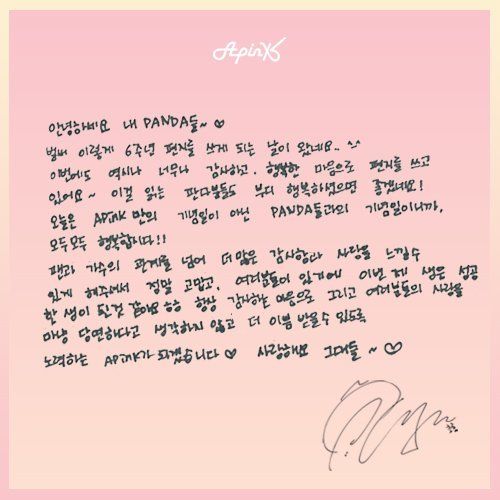 Apink
안녕하세요 내 PANDA들~ ♡
벌써 이렇게 6주년 편지를 쓰게 되는 날이 왔네요.. ^^
이번에도 역시나 너무나 감사하고, 행복한 마음으로 편지를 쓰고
있어요~ 이걸 읽는 판다분들도 부디 행복하셨으면 좋겠네요!
오늘은 APink 만의 기념일이 아닌 PANDA들과의 기념일이니까,
모두모두 행복합시다!!
팬과 가수의 관계를 넘어 더 많은 감사함과 사랑을 느낄수
있게 해주셔서 정말 고맙고, 여러분들이 있기에 이번 제 생은 성공
한 생이 된것 같아요 ㅎㅎ 항상 감사하는 마음으로 그리고 여러분들의 사랑을
마냥 당연하다고 생각하지 않고 더 이쁨 받을수 있도록
노력하는 APink가 되겠습니다 ♡ 사랑해요 그대들 ~ ♡